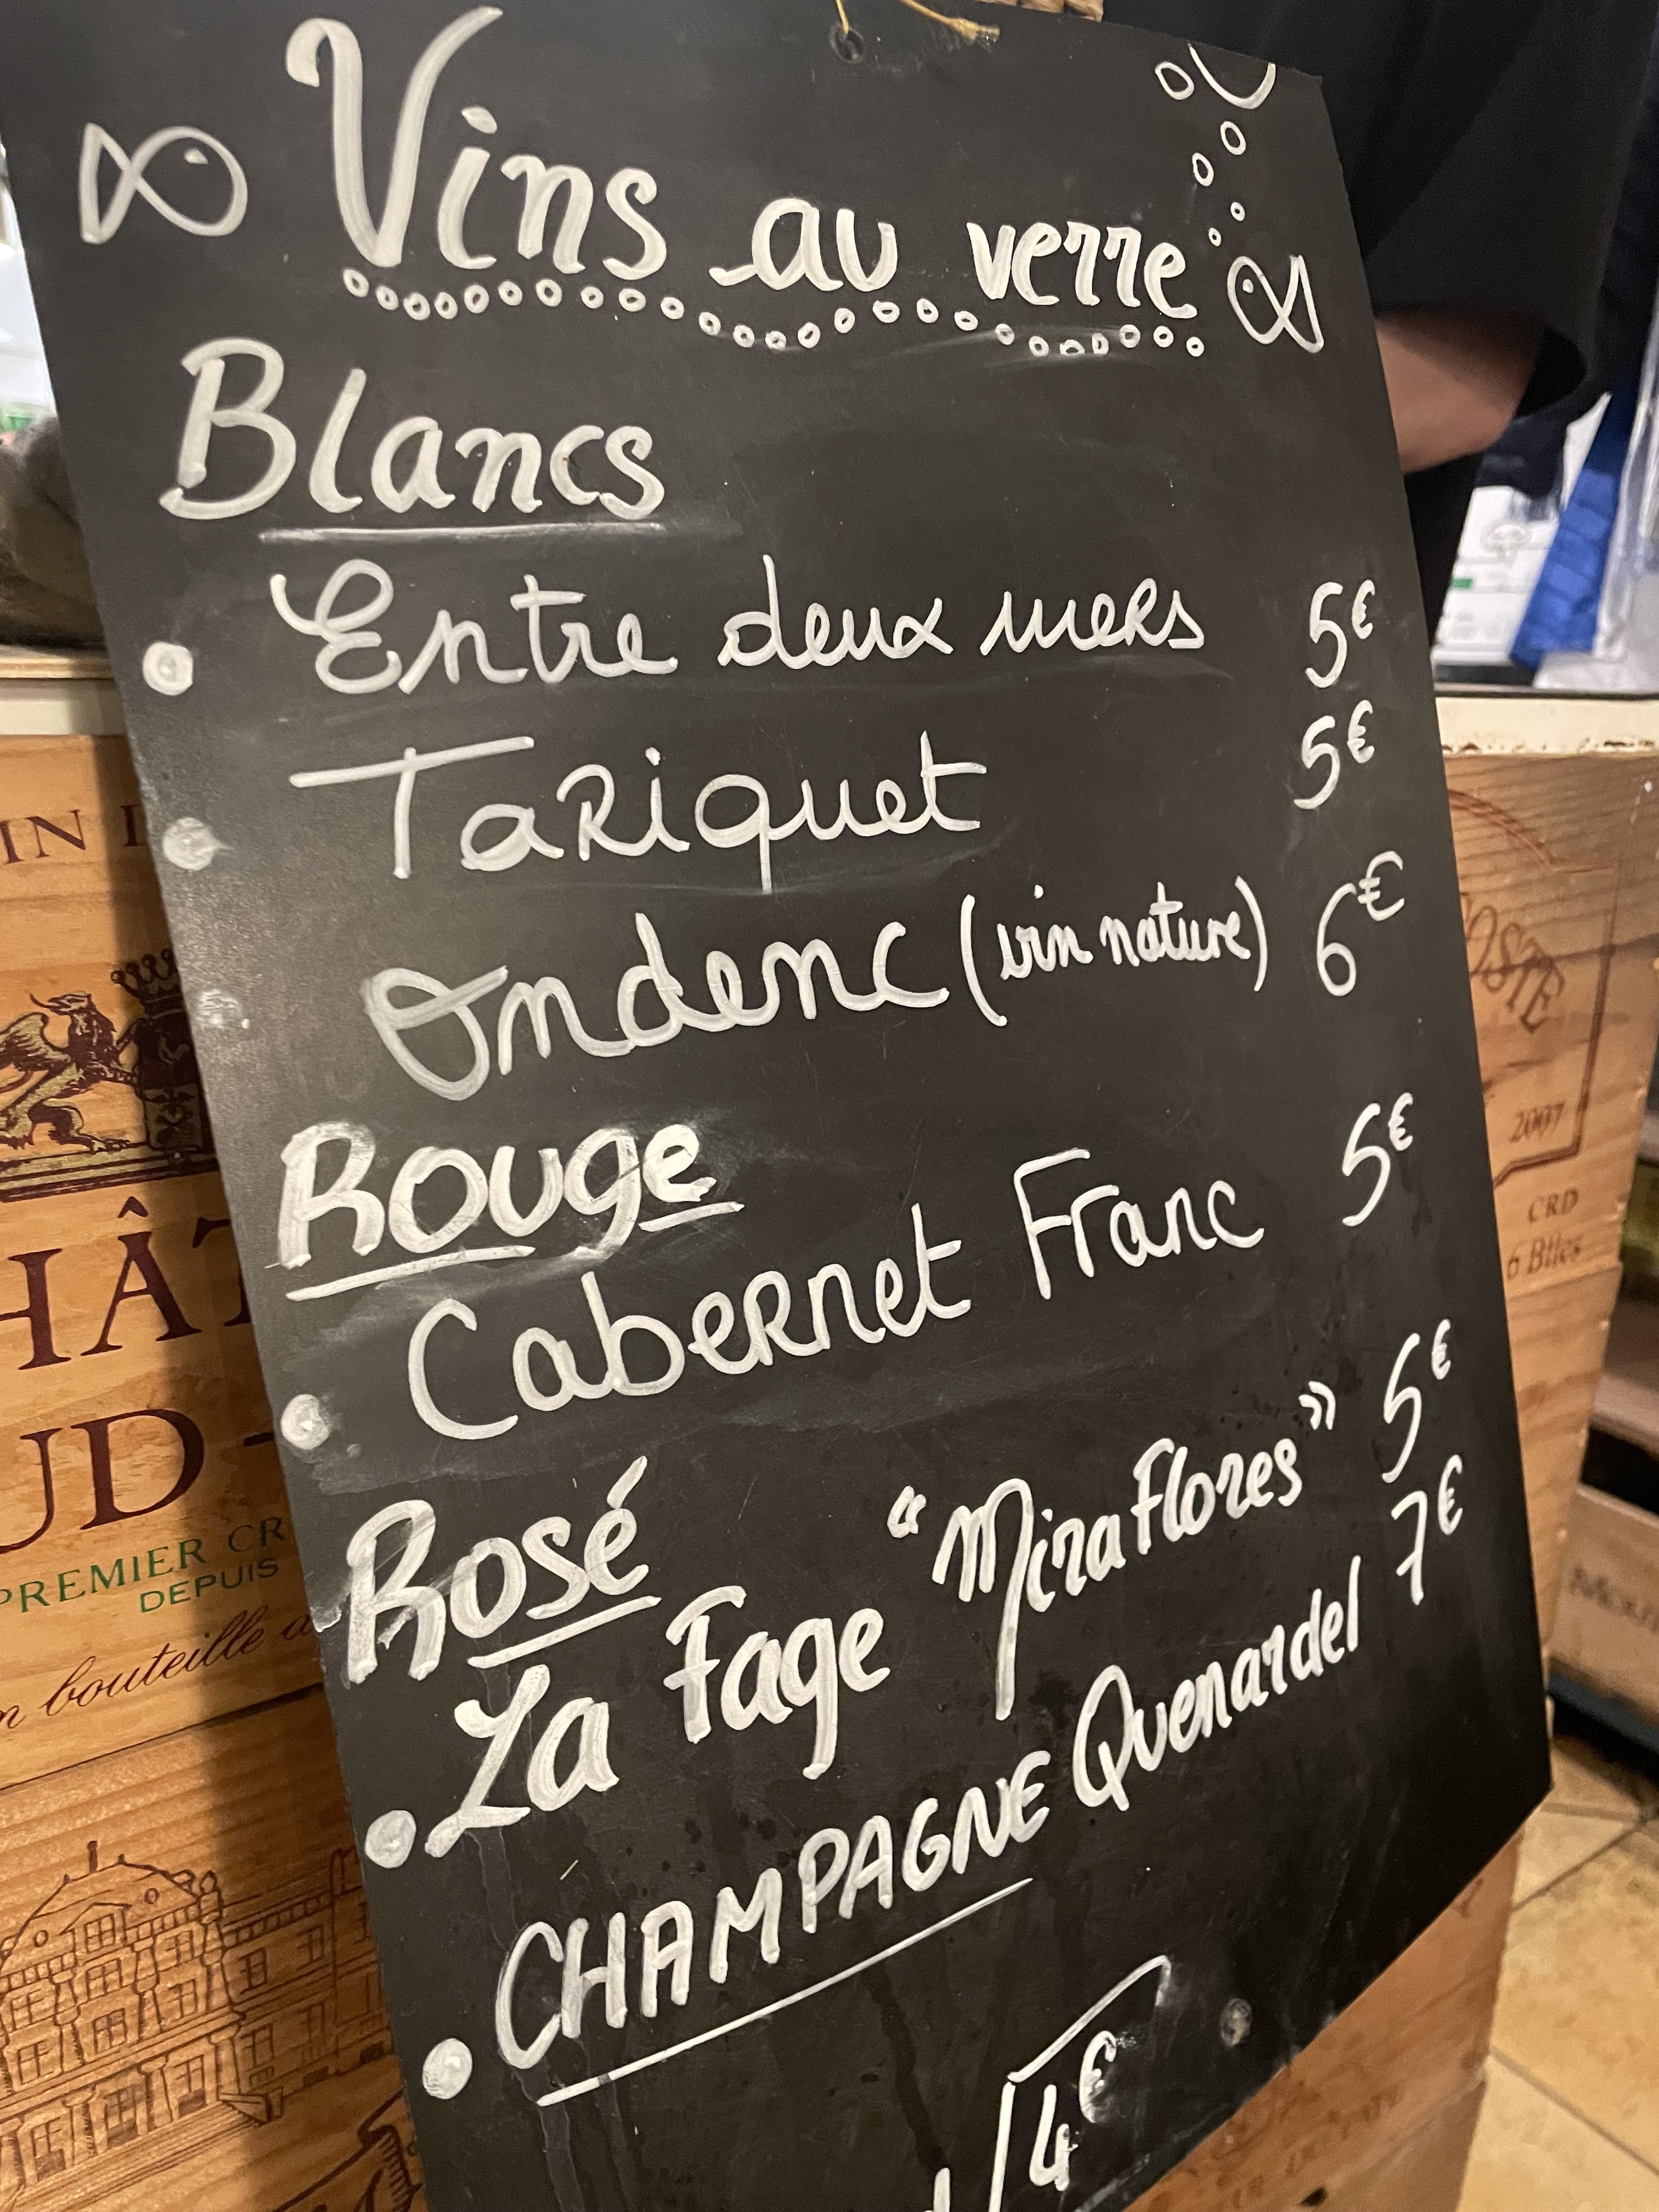 Vins au verre
Blancs
Entre deux mers 5€
Tariquet 5€
Ondenc (vin nature) 6€
Rouge
Cabernet Franc 5€
Rosé
La Fage "Miraflores" 5€
CHAMPAGNE Quenardel 7€
4€
HÂT
UD-
PREMIER CR
DEPUIS
bouteille
OSTE
2007
CRD
6 Blles